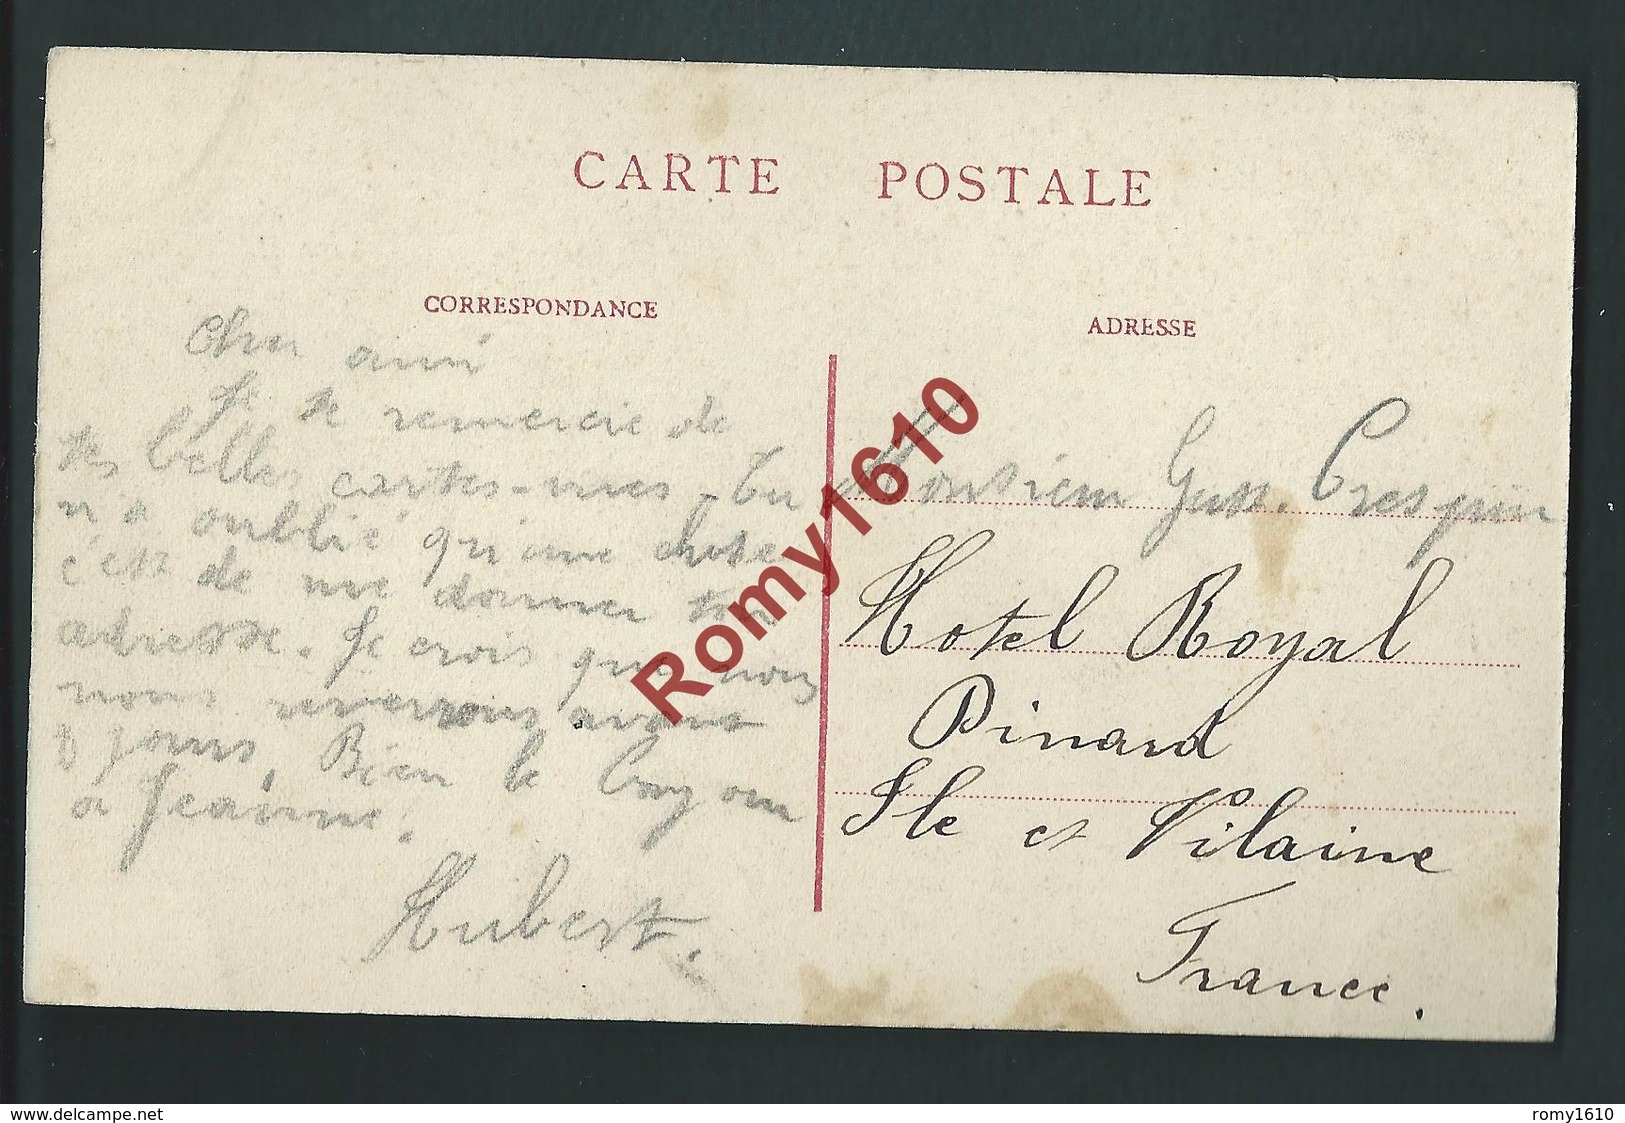 CARTE POSTALE
CORRESPONDANCE
Cher ami
Je te remercie de
tes belles cartes-vues. Tu
n'a oublié qu'une chose
c'est de me donner ton
adresse. Je crois que nous
nous reverrons avant
8 jours. Bien le bonjour
a Jeanne.
Hubert.
ADRESSE
Monsieur Gust. Crespin
Hotel Royal
Dinard
Ile et Vilaine
France.
Romy1610
www.delcampe.net
romy1610